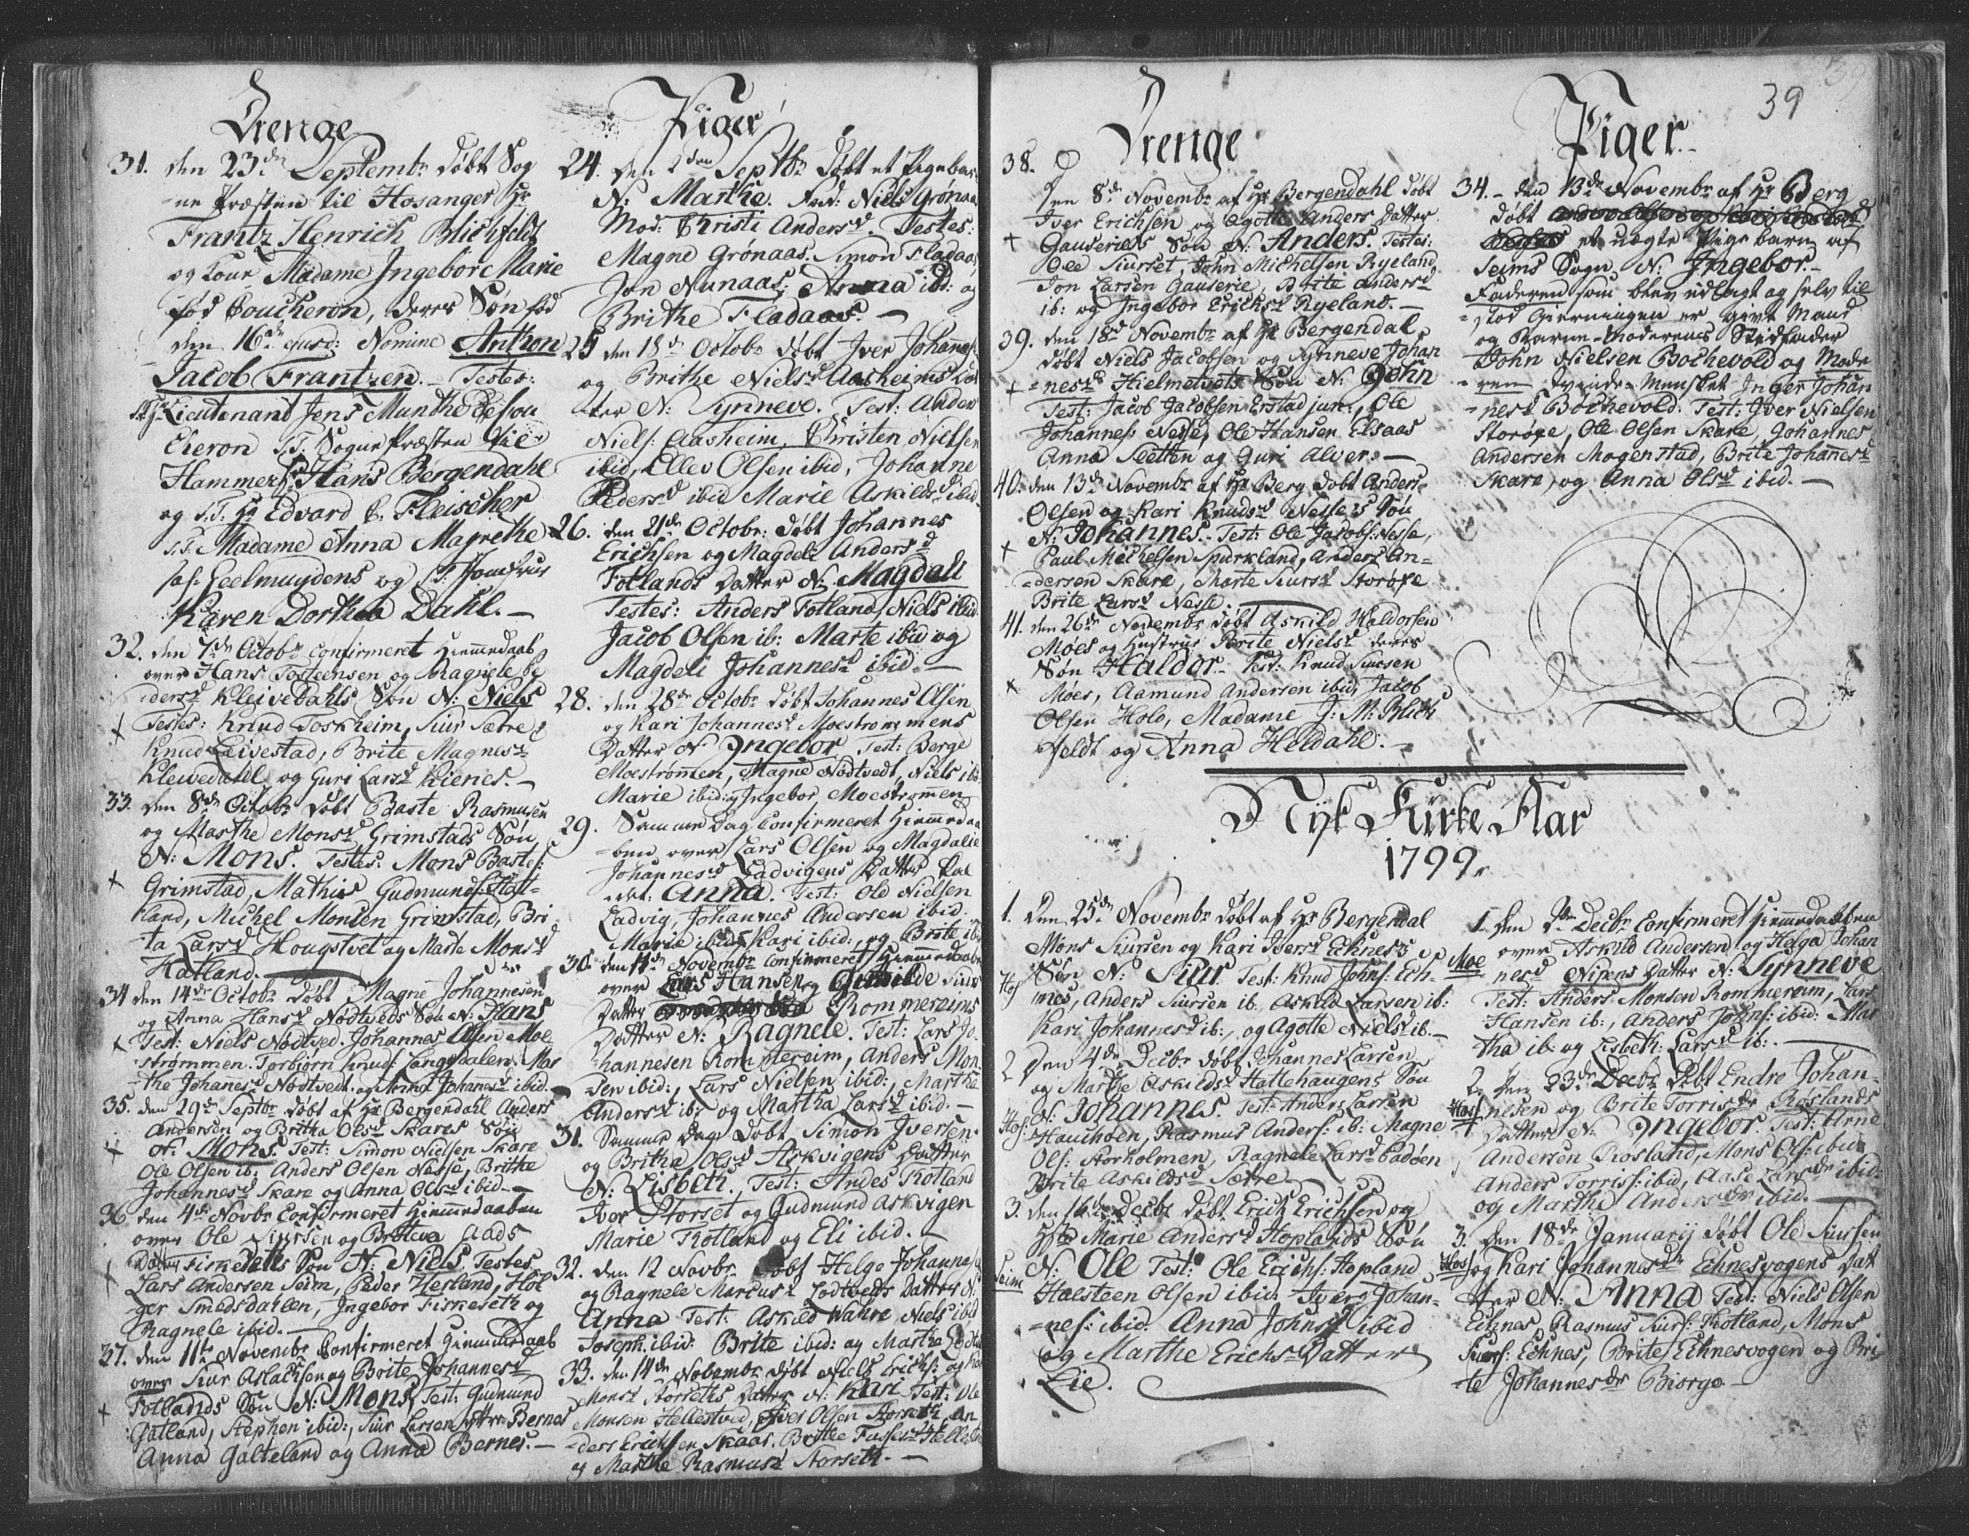 Drenge
31. den 23de Septembr døbt Sog
-ne Præsten til Hosanger Hr
Frantz Henrich Blichfeldt
og Kone Madame Ingebor Marie
fød Coucheron, deres Søn fød
den 16de ejusd: Nomine Anthon
Jacob Frantzen. Testes:
Lieutenant Jens Munthe Cou
cheron S.T. Sogne Præsten til
Hammer Hr Hans Bergendahl
og S.T. Hr Edvard C. Fleischer
S.T. Madame Anna Magrethe
sal: Geelmuydens og S.T. Jomfrue
Karen Dorthea Dahl.
32. den 7de Octobr confirmeret Hiemmedaab
over Hans Torsteensen og Ragnele
Kleivedahls Søn N: Niels
Testes: Knud Toskheim, Siur Sætre
Knud Leivestad, Brite Magnesd
Kleivedahl og Guri Larsd Kienes.
33. den 8de Octobr døbt Baste Rasmusen
og Marthe Monsd Grimstads Søn
N: Mons. Testes: Mons Bastes:
Grimstad, Mathis Gudmunds: Hat-
-land, Michel Monsen Grimstad, Bri-
ta Larsd Hougstvet og Marte Monsd
Hatland.
34 den 14de Octobr døbt Magne Johannesen
og Anna Hansd Nødtveds Søn N: Hans
Test: Niels Nødtved. Johannes Olsen Moe
strømmen. Torbjørn Knuds: Langedalen. Mar
the Johanesd Nødtvedt. og Anna Johannesd ibid.
35. den 29de Septbr døbt af Hr Bergendahl Anders
Andersen og Britha Olsd Skares Søn
N: Mons. Test: Simon Nielsen Skare
Ole Olsen ib: Anders Olsen Nesse, Brithe
Johannesd Skare og Anna Olsd ibid.
36 den 4de Novbr Confirmeret Hiemmedaaben
over Ole Siursen og Aads
Datter Fiskeseths Søn N: Niels. Testes
Lars Andersen Seim, Peder Herland, Hol
ger Smedsdahlen, Ingebor Fiskeseth og
Ragnele ibid.
37. den 11te Novembr Confirmeret Hiemmedaab
over Siur Aslachsen og Brite Johannesd
Fotlands Søn N: Mons Test: Gudmund
Gatland, Stephen ibid:, Siur Larsen Bernes
Anna Galteland og Anna Bernes.
Piger
24. den 2den Septbr døbt et Pigebar
N: Marthe. Fad: Niels Grønaas
Mod: Christi Andersd. Testes:
Magne Grønaas. Simon Fladaas
Jon Nunaas; Anna ibid: og
Brithe Fladaas.
25 den 18de Octobr døbt Iver Johans:
og Brithe Nielsd Aasheims Dat
ter N: Synneve. Test: Anders
Niels: Aasheim, Christen Nielsen
ibid, Ellev Olsen ibid, Johanne
Pedersd ibid Marie Askildsd ibid
26. den 21de Octobr: døbt Johannes
Erichsen og Magdele Andersd
Fotlands Datter N: Magdeli
Testes: Anders Fotland, Niels ibid
Jacob Olsen ib: Marte ibid og
Magdeli Johannesd ibid.
28. den 28de Octobr døbt Johannes Olsen
og Kari Johannesd Moestrømmens
Datter N: Ingebor Test: Berge
Moestrømen, Magne Nødtvedt, Niels ibi
Marie ibid: og Ingebor Moestrømen.
29. Samme Dag Confirmeret Hiemmedaa
-ben over Lars Olsen og Magdalie
Johannesd Ladvigens Datter kal
det: Anna. Test: Ole Nielsen
Ladvig, Johannes Andersen ibid.
Marie ibid: Kari ibid: og Brite ib:
30. den 11de Novembr Confirmeret Hiemmedaab
over Lars Hansen og Gunilde Siurs
Datter Rommereims
Datter N: Ragnele. Test: Lars Jo
hannesen Rommereim, Anders Mon
sen ibid:, Lars Nielsen ibid:, Marthe
Andersd ib: og Martha Larsd ibid.
31. Samme Dag døbt Simon Iversen
og Brithe Olsd Askvigens Datter
N: Lisbeth. Test: Andes Kotland
Iver Storset og Gudmund Askvigen
Marie Kotland og Eli ibid.
32. den 12 Novbr: døbt Helge Johannes:
og Ragnele Marcusd Lodtveds Datter N:
Anna Test: Askild Wahre Niels ibid
Joseph ibid: Brite ibid: og Martha
33. den 14de Novembr døbt Niels Erichs: og Kari
Monsd Storseths Datter N: Kari Test: Ole
Monsen Hellestved, Iver Olsen Storseth, An
-ders Erichsen Skaas. Brithe
og Marthe Rasmusd Storseth.
39
Drenge
38. Den 8de Novembr af Hr Bergendahl døbt
Iver Erichsen og Agotte Anders Datter
Gauseries Søn N: Anders. Testes:
Ole Siurset, John Michelsen Ryeland
Jon Larsen Gauserie, Brite Andersd
ib: og Ingebor Ericksd Ryeland.
39. den 18de Novembr af Hr Bergendal
døbt Niels Jacobsen og Synneve Johan
-nesd Hielmetvets Søn N: John
Test: Jacob Jacobsen Erstad jun:, Ole
Johannes: Nesse, Ole Hansen Elsaas
Anna Sletten og Guri Alver.
40. den 13de Novembr af Hr Berg. døbt Anders
Olsen og Kari Knudsd Nesses Søn
N: Johannes. Test: Ole Jacobs: Nesse,
Paul Mechelsen Spurkland, Anders An-
-dersen Skare, Marte Siursd Storøxe
Brite Larsd Nesse.
41. den 26de Novembr døbt Askild Haldorsen
Møes og Hustrue Berite Nielsd deres
Søn Haldor. Test: Knud Siursen
Møes, Aamund Andersen ibid, Jacob
Olsen Holo, Madame J: M: Blich
-feldt og Anna Heldahl.
Piger
34. den 13de Novembr af Hr Berg
døbt
et uægte Pigebarn af
Seims Sogn N: Ingebor.
Faderen som blev udlagt og selv til
-stod Gierningen er givt Mand
og Barne-moderens Stedfader
John Nielsen Bochevold og Mode
-ren Inger Johan
-nesd Bochevold. Test: Iver Nielsen
Storøxe, Ole Olsen Skare, Johannes
Andersen Mogenstad, Brite Johanesd
Skare, og Anna Olsd ibid.
Nyt Kirke Aar
1799.
1. Den 25de Novembr døbt af Hr Bergendal
Mons Siursen og Kari Iversd Echnes's
Hos Søn N: Siur. Test: Knud Johns: Ech-
nes, Anders Siursen ib: Askild Larsen ib:
Kari Johannesd ib:, og Agotte Nielsd ib.
2 Den 4de Decbr døbt Johannes Larsen
og Martje Askildsd Hattehaugens Søn
Hos: N: Johannes. Test: Anders Larsen
Hauchøen, Rasmus Anders: ib: Magne
Ols: Storholmen, Ragnele Larsd Padøen
Brite Askildsd Sætre
3. den 16de Decbr døbt Erich Erichsen og
Marie Andersd Hoplands Søn
Seim N: Ole Test: Ole Erichs: Hopland
Halsteen Olsen ibid: Iver Johan-
-nes: ibid. Anna Johnsd ibid
og Marthe Erichs Datter
Lie.
1. den 9de Decbr Confirmeret Hiemmedaaben
over Askild Andersen og Helga Johan
Moe nesd Nipens Datter N: Synneve
Test: Anders Monsen Rommereim, Lars
Hansen ib:, Anders Johns: ibid: Mar
tha ib: og Lisbeth: Larsd ib:.
2. den 23de Decbr døbt Endre Johan-
Hos nesen og Brite Torrisdr Roslands
Datter N: Ingebor. Test: Arne
Andersen Rosland, Mons Ols: ibid
Anders Torris: ibid, Aase Larsdr ibid:
og Marthe Andersdr ibid.
3. den 18de Januarij døbt Ole Siursen
Hos og Kari Johannesdr Echnesvogens Dat
ter N: Anna Test: Niels Olsen
Echnes, Rasmus Siurs: Kotland, Mons
Siurs: Echnes, Brite Echnesvogen og Bri
te Johannesdr Biorge